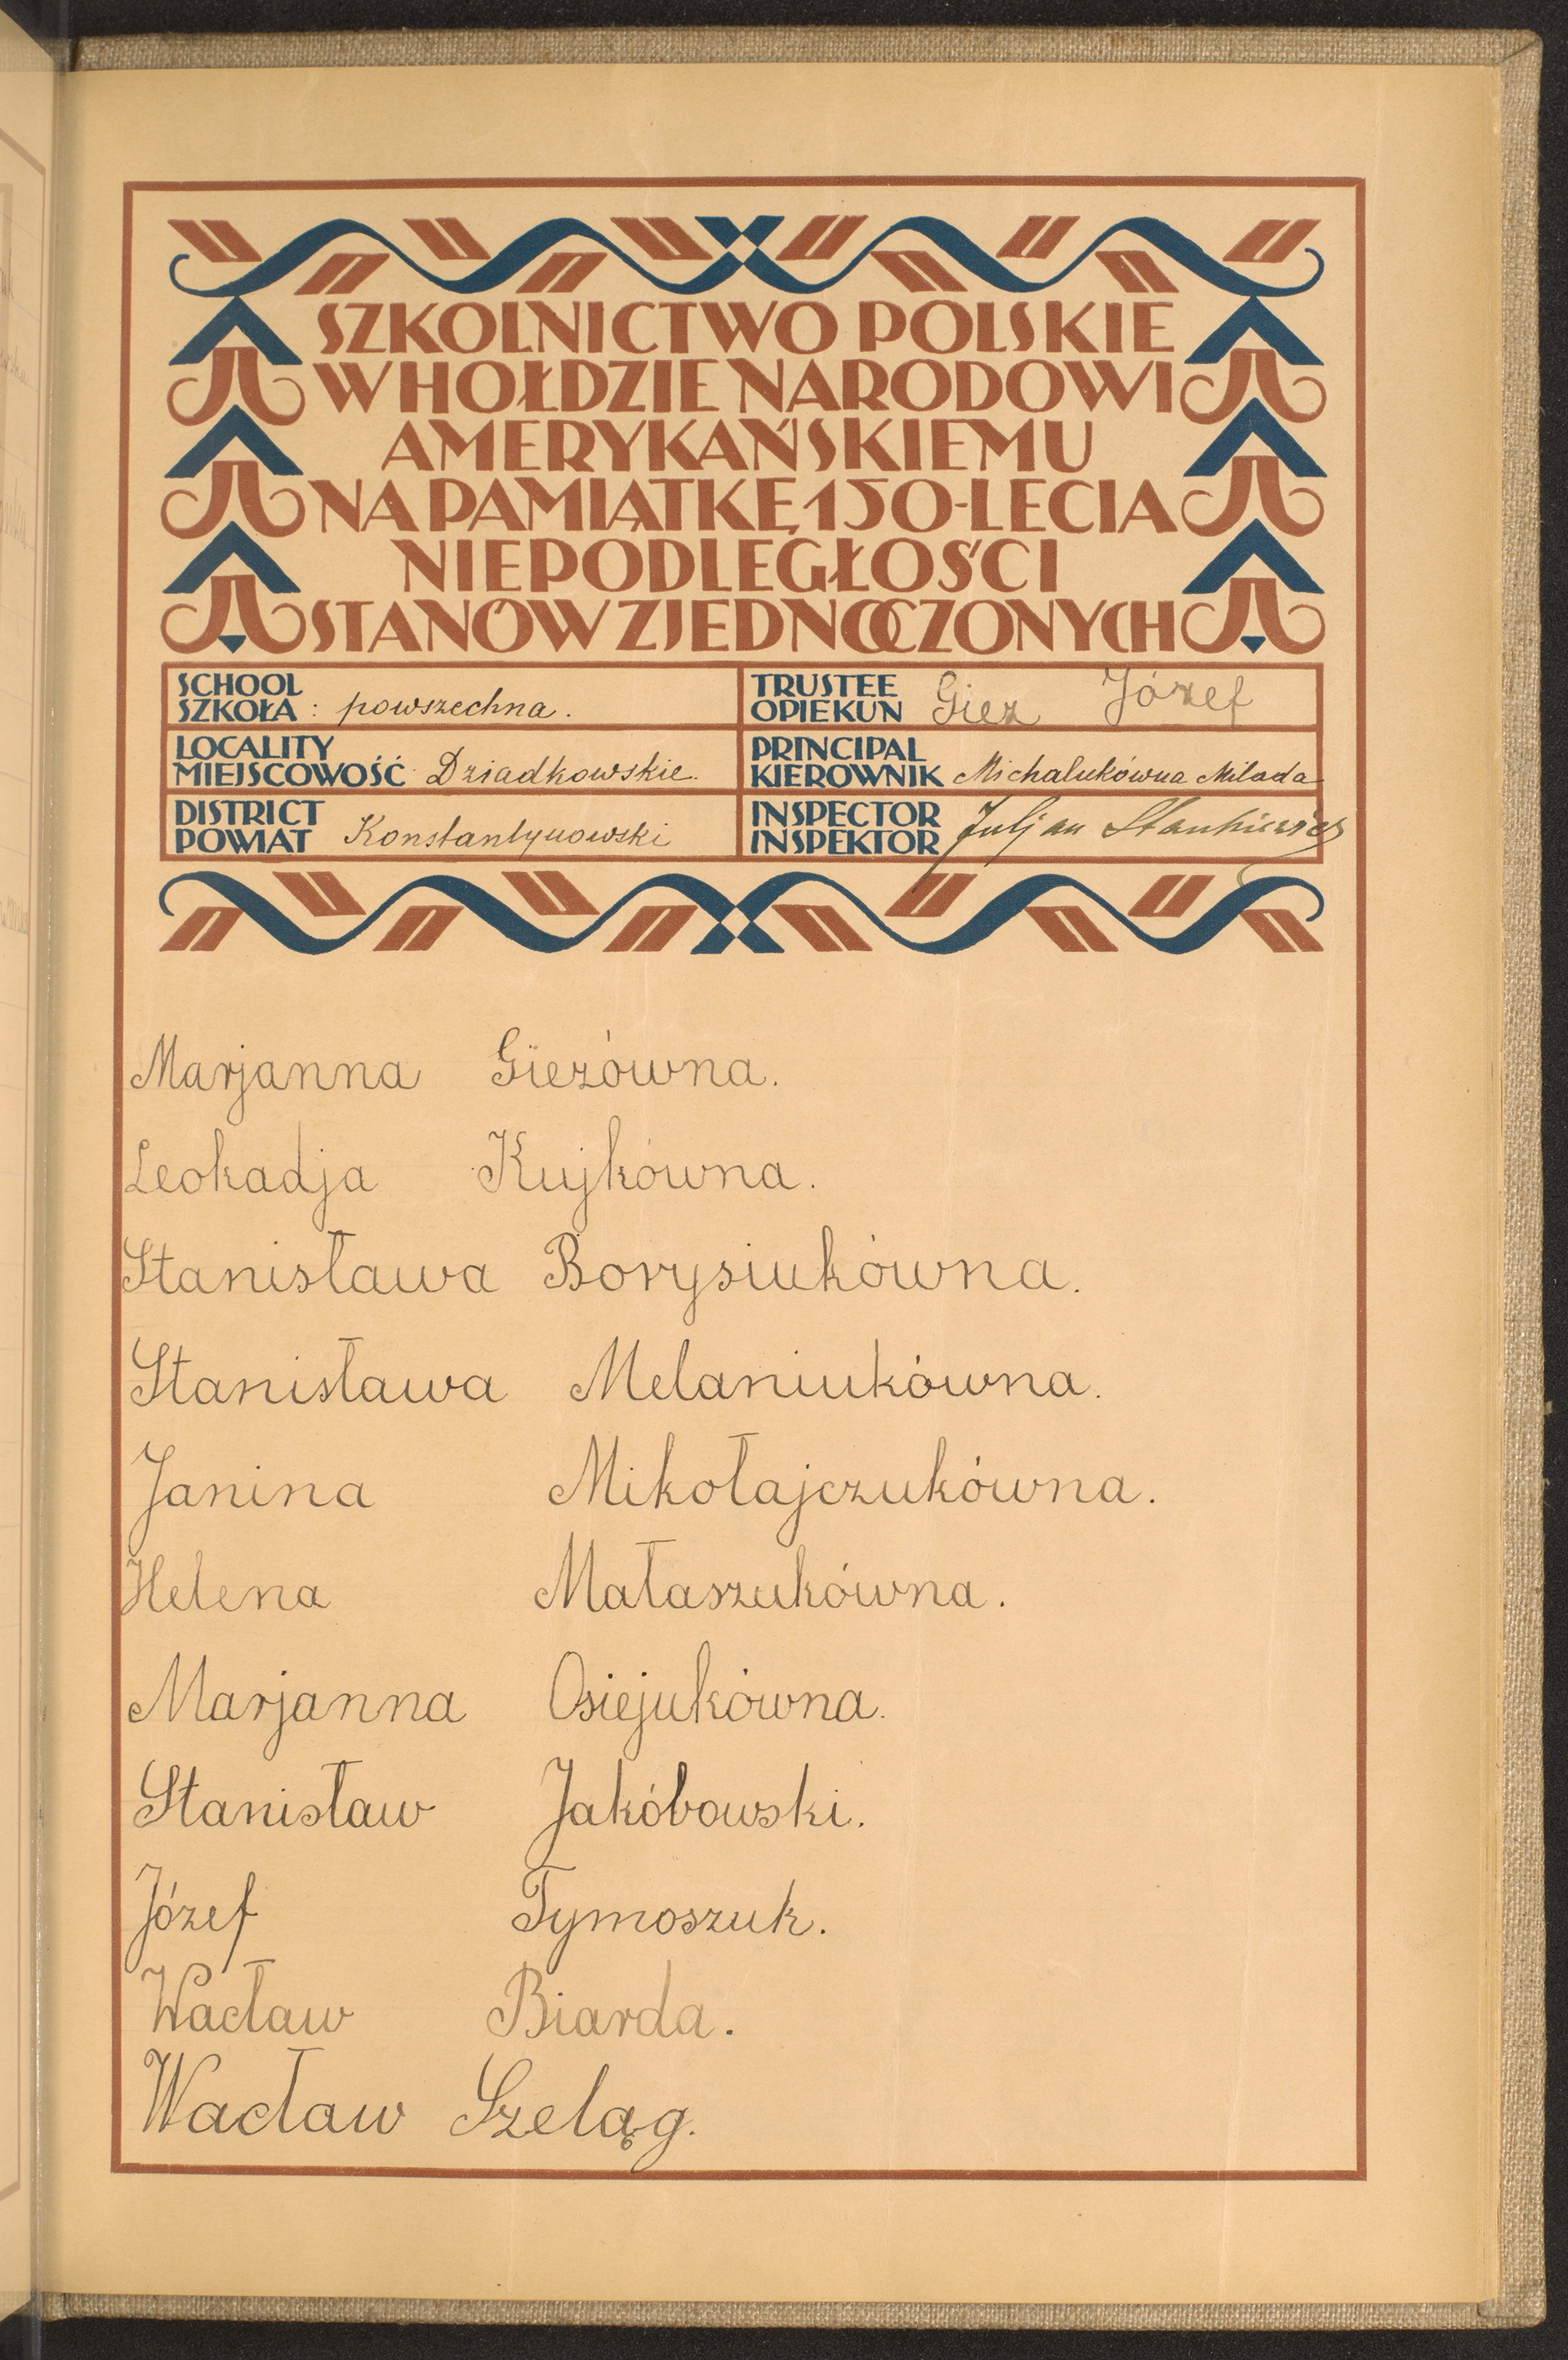 SZKOLNICTWO POLSKIE
W HOŁDZIE NARODOWI
AMERYKAŃSKIEMU
NA PAMIĄTKĘ 150-LECIA
NIEPODLEGŁOŚCI
STANÓW ZJEDNOCZONYCH
SCHOOL
SZKOŁA : powszechna.
TRUSTEE
OPIEKUN Giez Józef
LOCALITY
MIEJSCOWOŚĆ Dziadkowskie.
PRINCIPAL
KIEROWNIK Michalukówna Milada
DISTRICT
POWIAT Konstantynowski
INSPECTOR
INSPEKTOR Juljan Stankiewicz
Marjanna Giezówna.
Leokadja Kujkówna.
Stanisława Borysiukówna.
Stanisława Melaniukówna.
Janina Mikołajczukówna.
Helena Małaszukówna.
Marjanna Osiejukówna.
Stanisław Jakóbowski.
Józef Tymoszuk.
Wacław Biarda.
Wacław Szeląg.